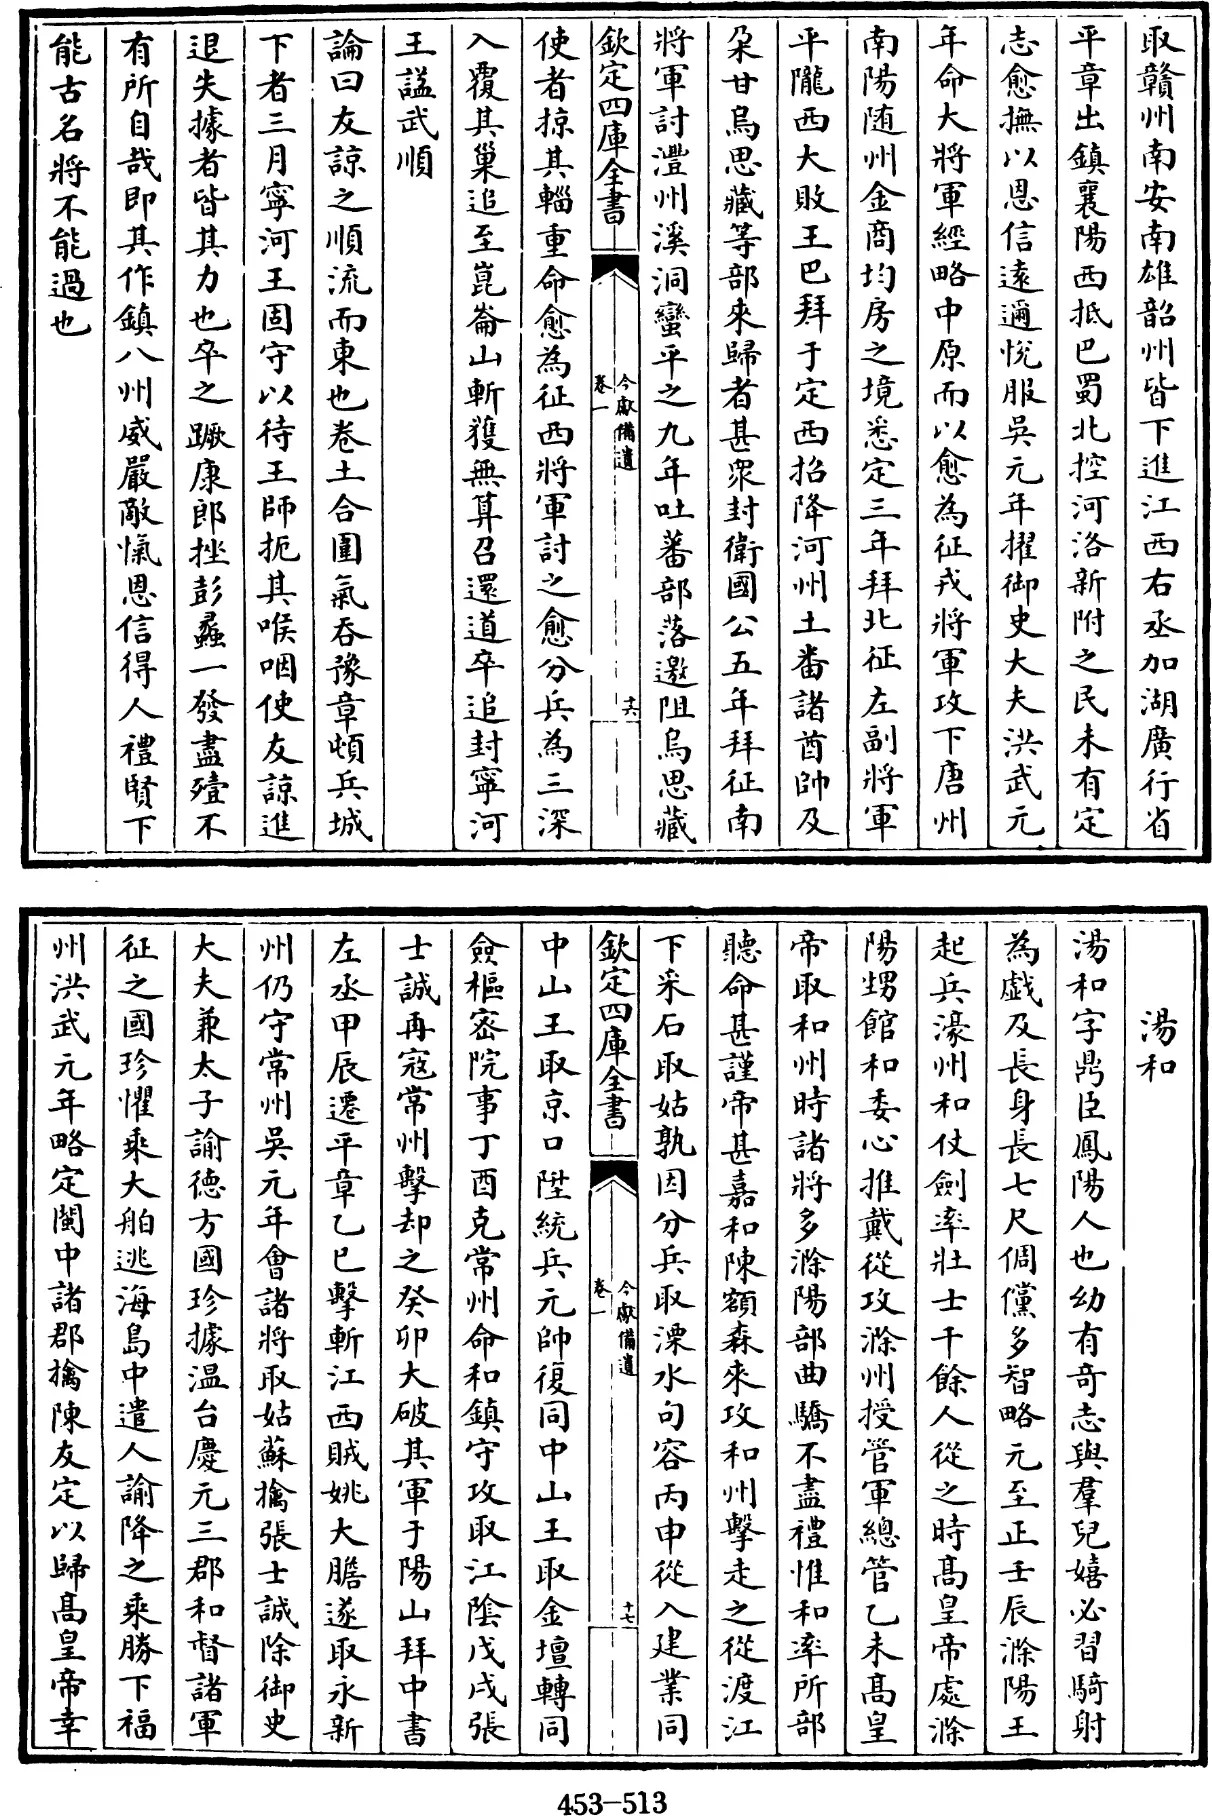 取贛州南安南雄韶州皆下進江西右丞加湖廣行省
平章出鎮襄陽西抵巴蜀北控河洛新附之民未有定
志愈撫以恩信遠邇悅服吳元年擢御史大夫洪武元
年命大將軍經略中原而以愈為征戎將軍攻下唐州
南陽随州金商均房之境悉定三年拜北征左副將軍
平隴西大敗王巴拜于定西招降河州土番諸酋帥及
朶甘烏思藏等部來歸者甚衆封衛國公五年拜征南
將軍討澧州溪洞蠻平之九年吐蕃部落邀阻烏思藏
欽定四庫全書
今獻備遺
卷一
十六
使者掠其輜重命愈為征西將軍討之愈分兵為三深
入覆其巢追至崑崙山斬獲無算召還道卒追封寧河
王諡武順
論曰友諒之順流而東也卷土合圍氣吞豫章頓兵城
下者三月寧河王固守以待王師扼其喉咽使友諒進
退失據者皆其力也卒之蹶康郎挫彭蠡一發盡殪不
有所自哉即其作鎮八州威嚴敵愾恩信得人禮賢下
能古名將不能過也
湯和
湯和字鼎臣鳳陽人也幼有奇志與羣兒嬉必習騎射
為戲及長身長七尺倜儻多智略元至正壬辰滁陽王
起兵濠州和仗劍率壯士千餘人從之時髙皇帝處滁
陽甥館和委心推戴從攻滁州授管軍總管乙未髙皇
帝取和州時諸將多滁陽部曲驕不盡禮惟和率所部
聽命甚謹帝甚嘉和陳額森來攻和州擊走之從渡江
下采石取姑孰因分兵取溧水句容丙申從入建業同
欽定四庫全書
今獻備遺
卷一
十七
中山王取京口陞統兵元帥復同中山王取金壇轉同
僉樞密院事丁酉克常州命和鎮守攻取江陰戊戌張
士誠再寇常州擊却之癸卯大破其軍于陽山拜中書
左丞甲辰遷平章乙巳擊斬江西賊姚大膽遂取永新
州仍守常州吳元年會諸將取姑蘇擒張士誠除御史
大夫兼太子諭德方國珍據温台慶元三郡和督諸軍
征之國珍懼乘大舶逃海島中遣人諭降之乘勝下福
州洪武元年略定閩中諸郡擒陳友定以歸髙皇帝幸
453-513